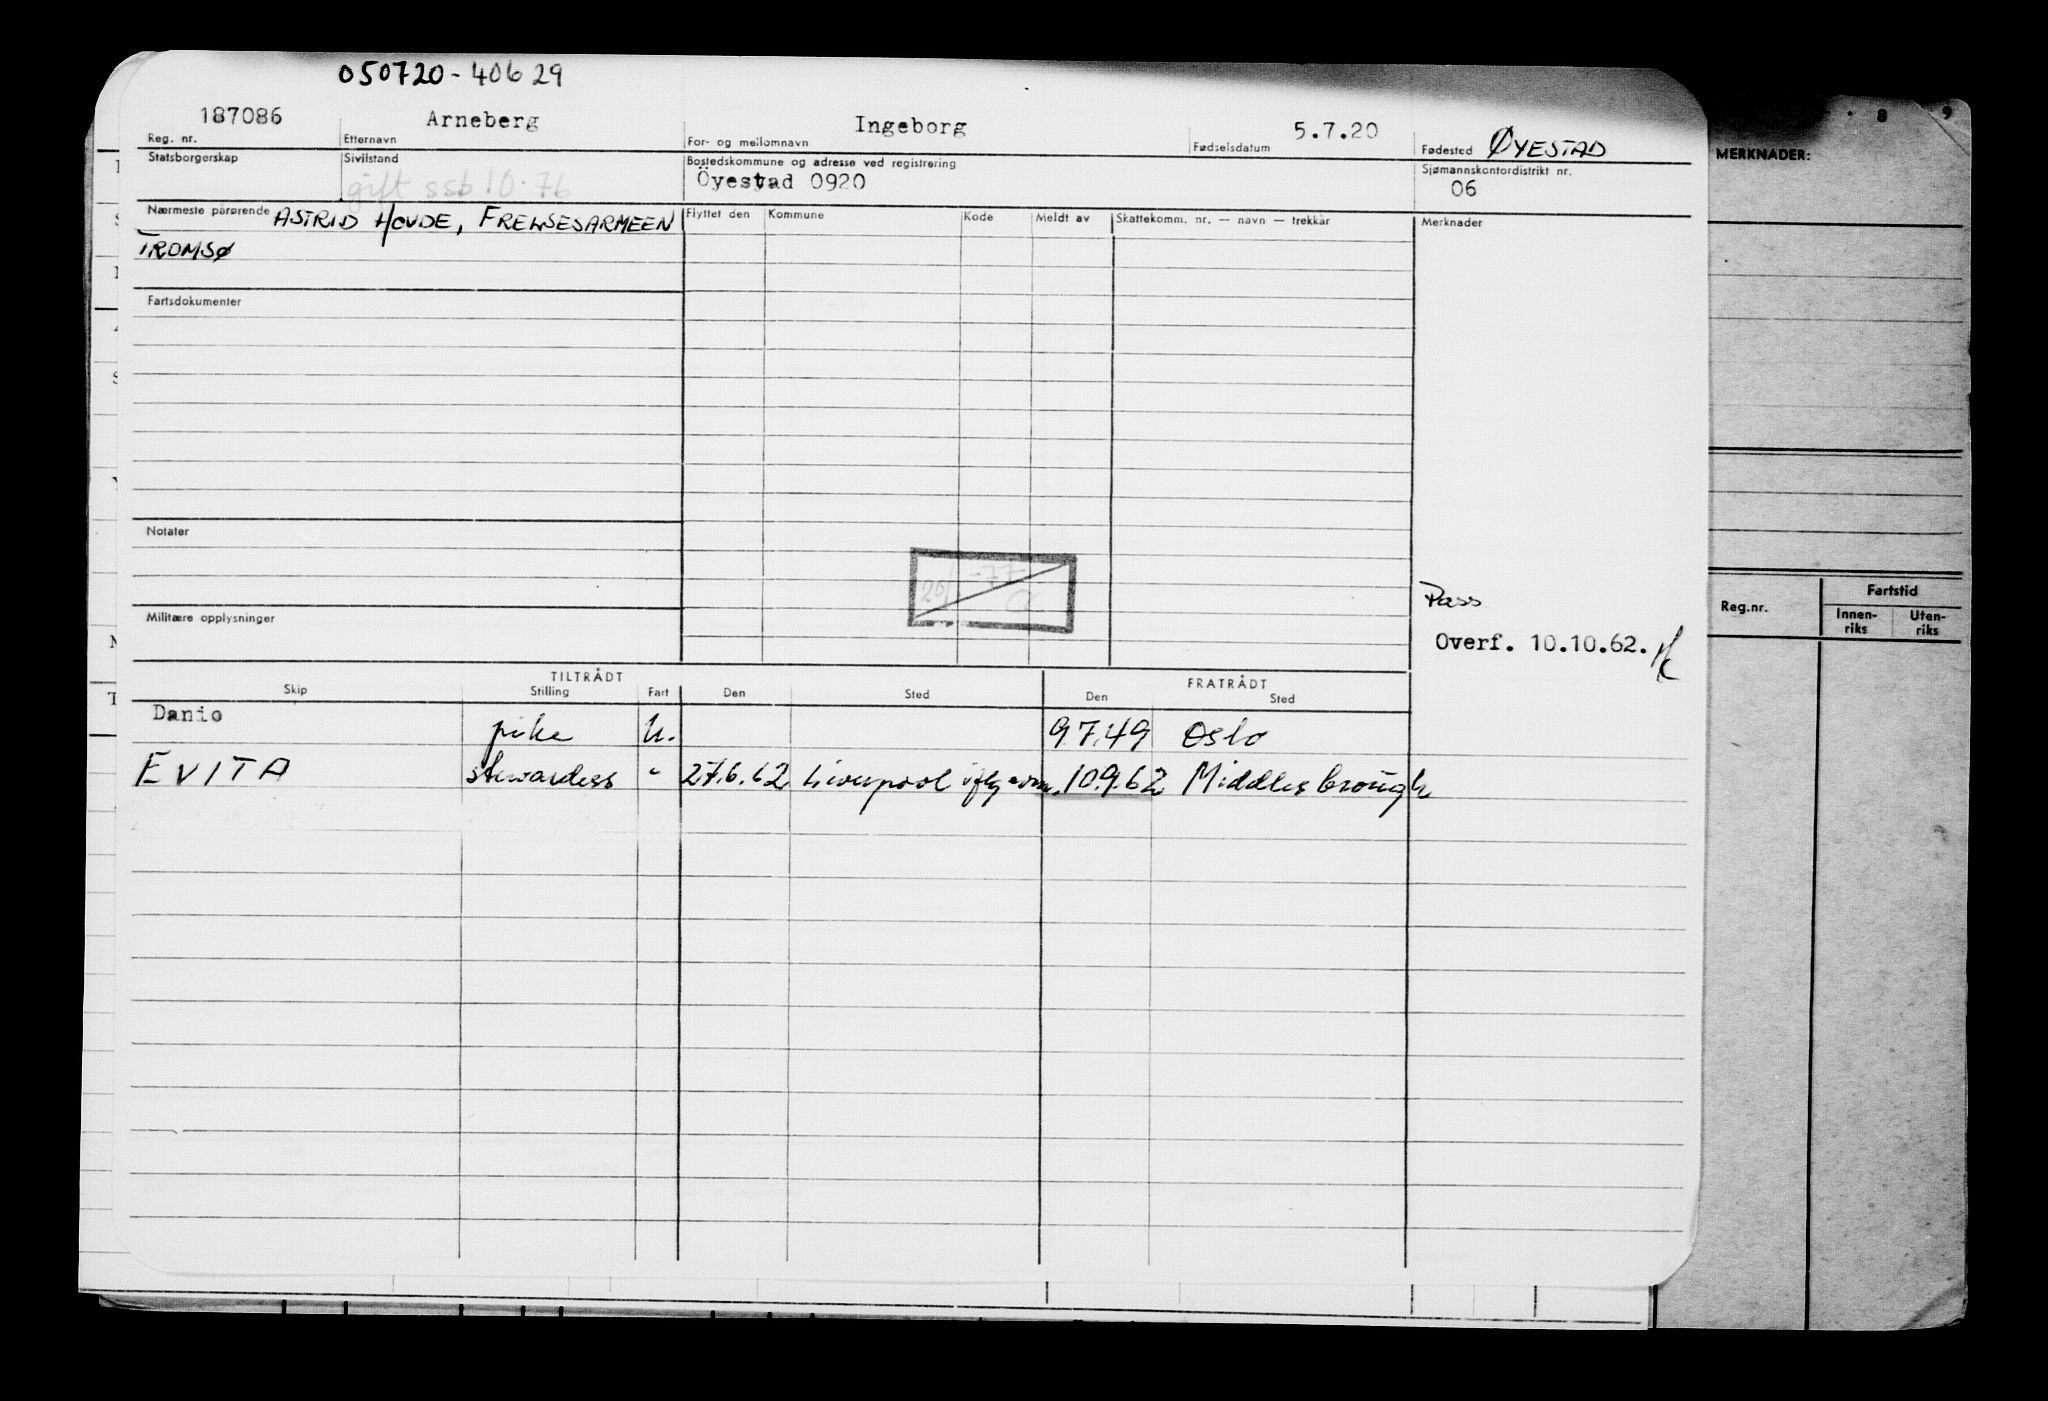 050720-40629
187086 Arneberg Ingeborg 5.7.20
Reg. nr. Etternavn For- og mellomnavn Fødselsdatum Fødested ØYESTAD
Statsborgerskap Sivilstand Bostedskommune og adresse ved registrering Sjømannskontordistrikt nr.
gift ssb 10.76 Öyestad 0920 06
Nærmeste pårørende ASTRID HOVDE, FRELSESARMEEN Flyttet den Kommune Kode Meldt av Skattekomm. nr. — navn — trekkår Merknader
TROMSØ
Fartsdokumenter
Notater
26/ -77-
Militære opplysninger
Pass
Overf. 10.10.62.
TILTRÅDT FRATRÅDT
Skip Stilling Fart Den Sted Den Sted
Danio pike U. 9.7.49 Oslo
EVITA stewardess " 27.6.62 Liverpool 10.9.62 Middlesbrough
8 9
MERKNADER:
Reg.nr. Fartstid
Innen-riks Uten-riks